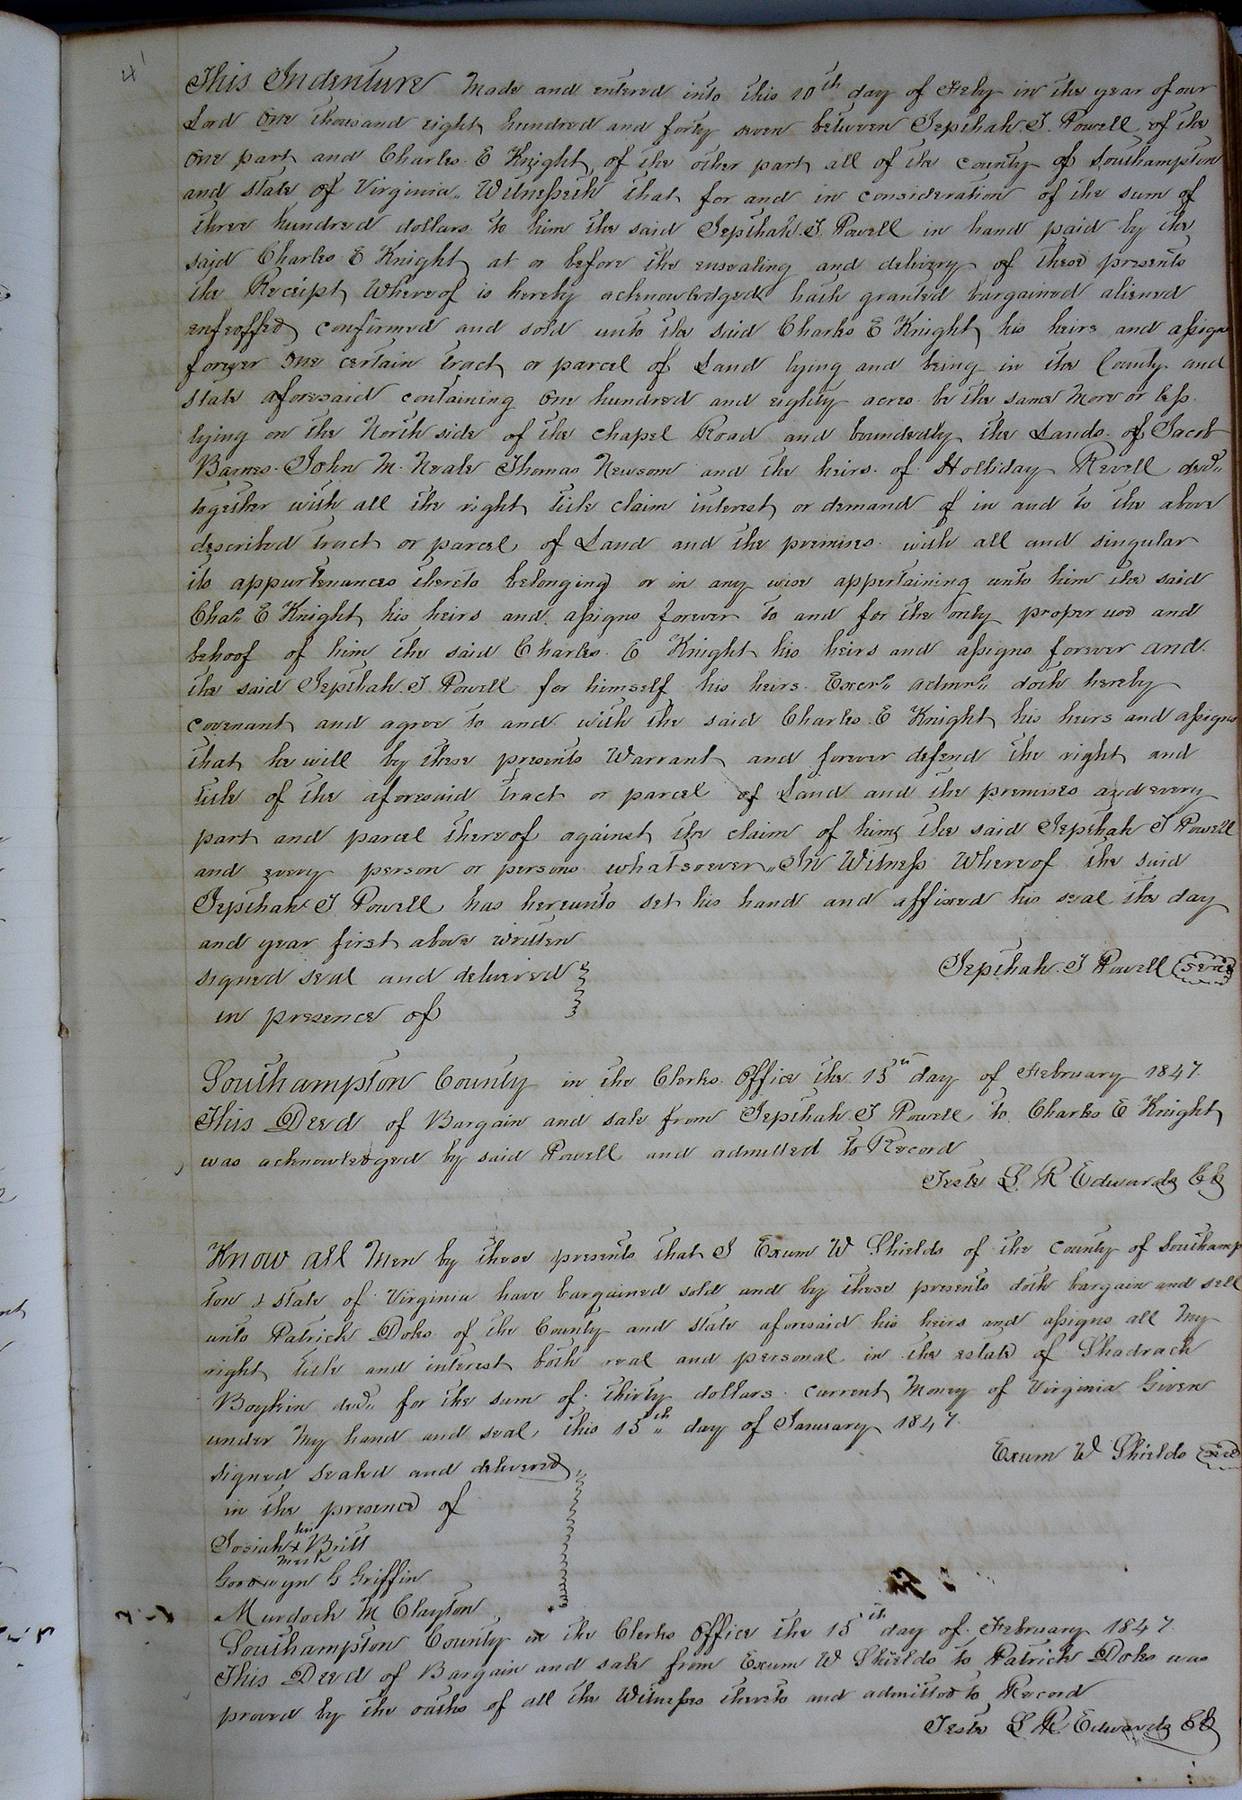 41
This Indenture Made and entered into this 10th day of Feby in the year of our
Lord One thousand eight hundred and forty seven between Jepthah. J. Powell of the
One part and Charles. E Knight of the other part all of the county of Southampton
and state of Virginia. Witnesseth that for and in consideration of the sum of
three hundred dollars to him the said Jepthah. J. Powell in hand paid by the
said Charles E Knight at or before the ensealing and delivery of these presents
the Receipt Whereof is hereby acknowledged hath granted bargained aliened
enfeoffed confirmed and sold unto the said Charles E Knight his heirs and assigns
forever One certain tract or parcel of Land lying and being in the County and
state aforesaid containing One hundred and eighty acres be the same More or less.
lying on the North side of the chapel Road and bounded by the Lands. of Jacob
Barnes. John M. Neale Thomas Newsom and the heirs. of Holliday Revell decd.
together with all the right title claim interest or demand of in and to the above
described tract or parcel of Land and the premises. with all and singular
its appurtenances thereto belonging or in any wise appertaining unto him the said
Chas. E Knight his heirs and. assigns forever to and for the only proper use and
behoof of him the said Charles. E Knight his heirs and assigns forever and.
the said Jepthah. J Powell for himself his heirs. Execrs. admrs. doth hereby
covenant and agree to and. with the said Charles. E Knight his heirs and assigns
that he will by these presents Warrant and forever defend the right and
title of the aforesaid tract or parcel of Land and the premises and every
part and parcel thereof against the claim of him the said Jepthah J Powell
and every person or persons whatsoever. In Witness Whereof the said
Jepthah J Powell has hereunto set his hand and affixed his seal the day
and year first above written
signed seal and delivered
in presence of
Jepthah. J Powell seal
Southampton County in the Clerks Office the 15th day of February 1847
This Deed of Bargain and sale from Jepthah. J Powell to Charles E Knight
was acknowledged by said Powell and admitted to Record
Teste L. R Edwards CC
Know all Men by these presents that I Exum W Shields of the County of Southamp
ton & state of Virginia have bargained sold and by these presents doth bargain and sell
unto Patrick Doles of the County and state aforesaid his heirs and assigns all My
right title and interest both real and personal in the estate of Shadrach
Boykin decd. for the sum of thirty dollars. current Money of Virginia Given
under My hand and seal this 15th day of January 1847.
Exum W Shields seal
signed sealed and delivered
in the presence of
his
Josiah x Britt
mark
Goodwyn G Griffin
Murdoch M Clayton
Southampton County in the Clerks Office the 15th day of February 1847
This Deed of Bargain and sale from Exum W Shields to Patrick Doles was
proved by the oaths of all the Witnesses thereto and admitted to Record
Teste L R Edwards CC